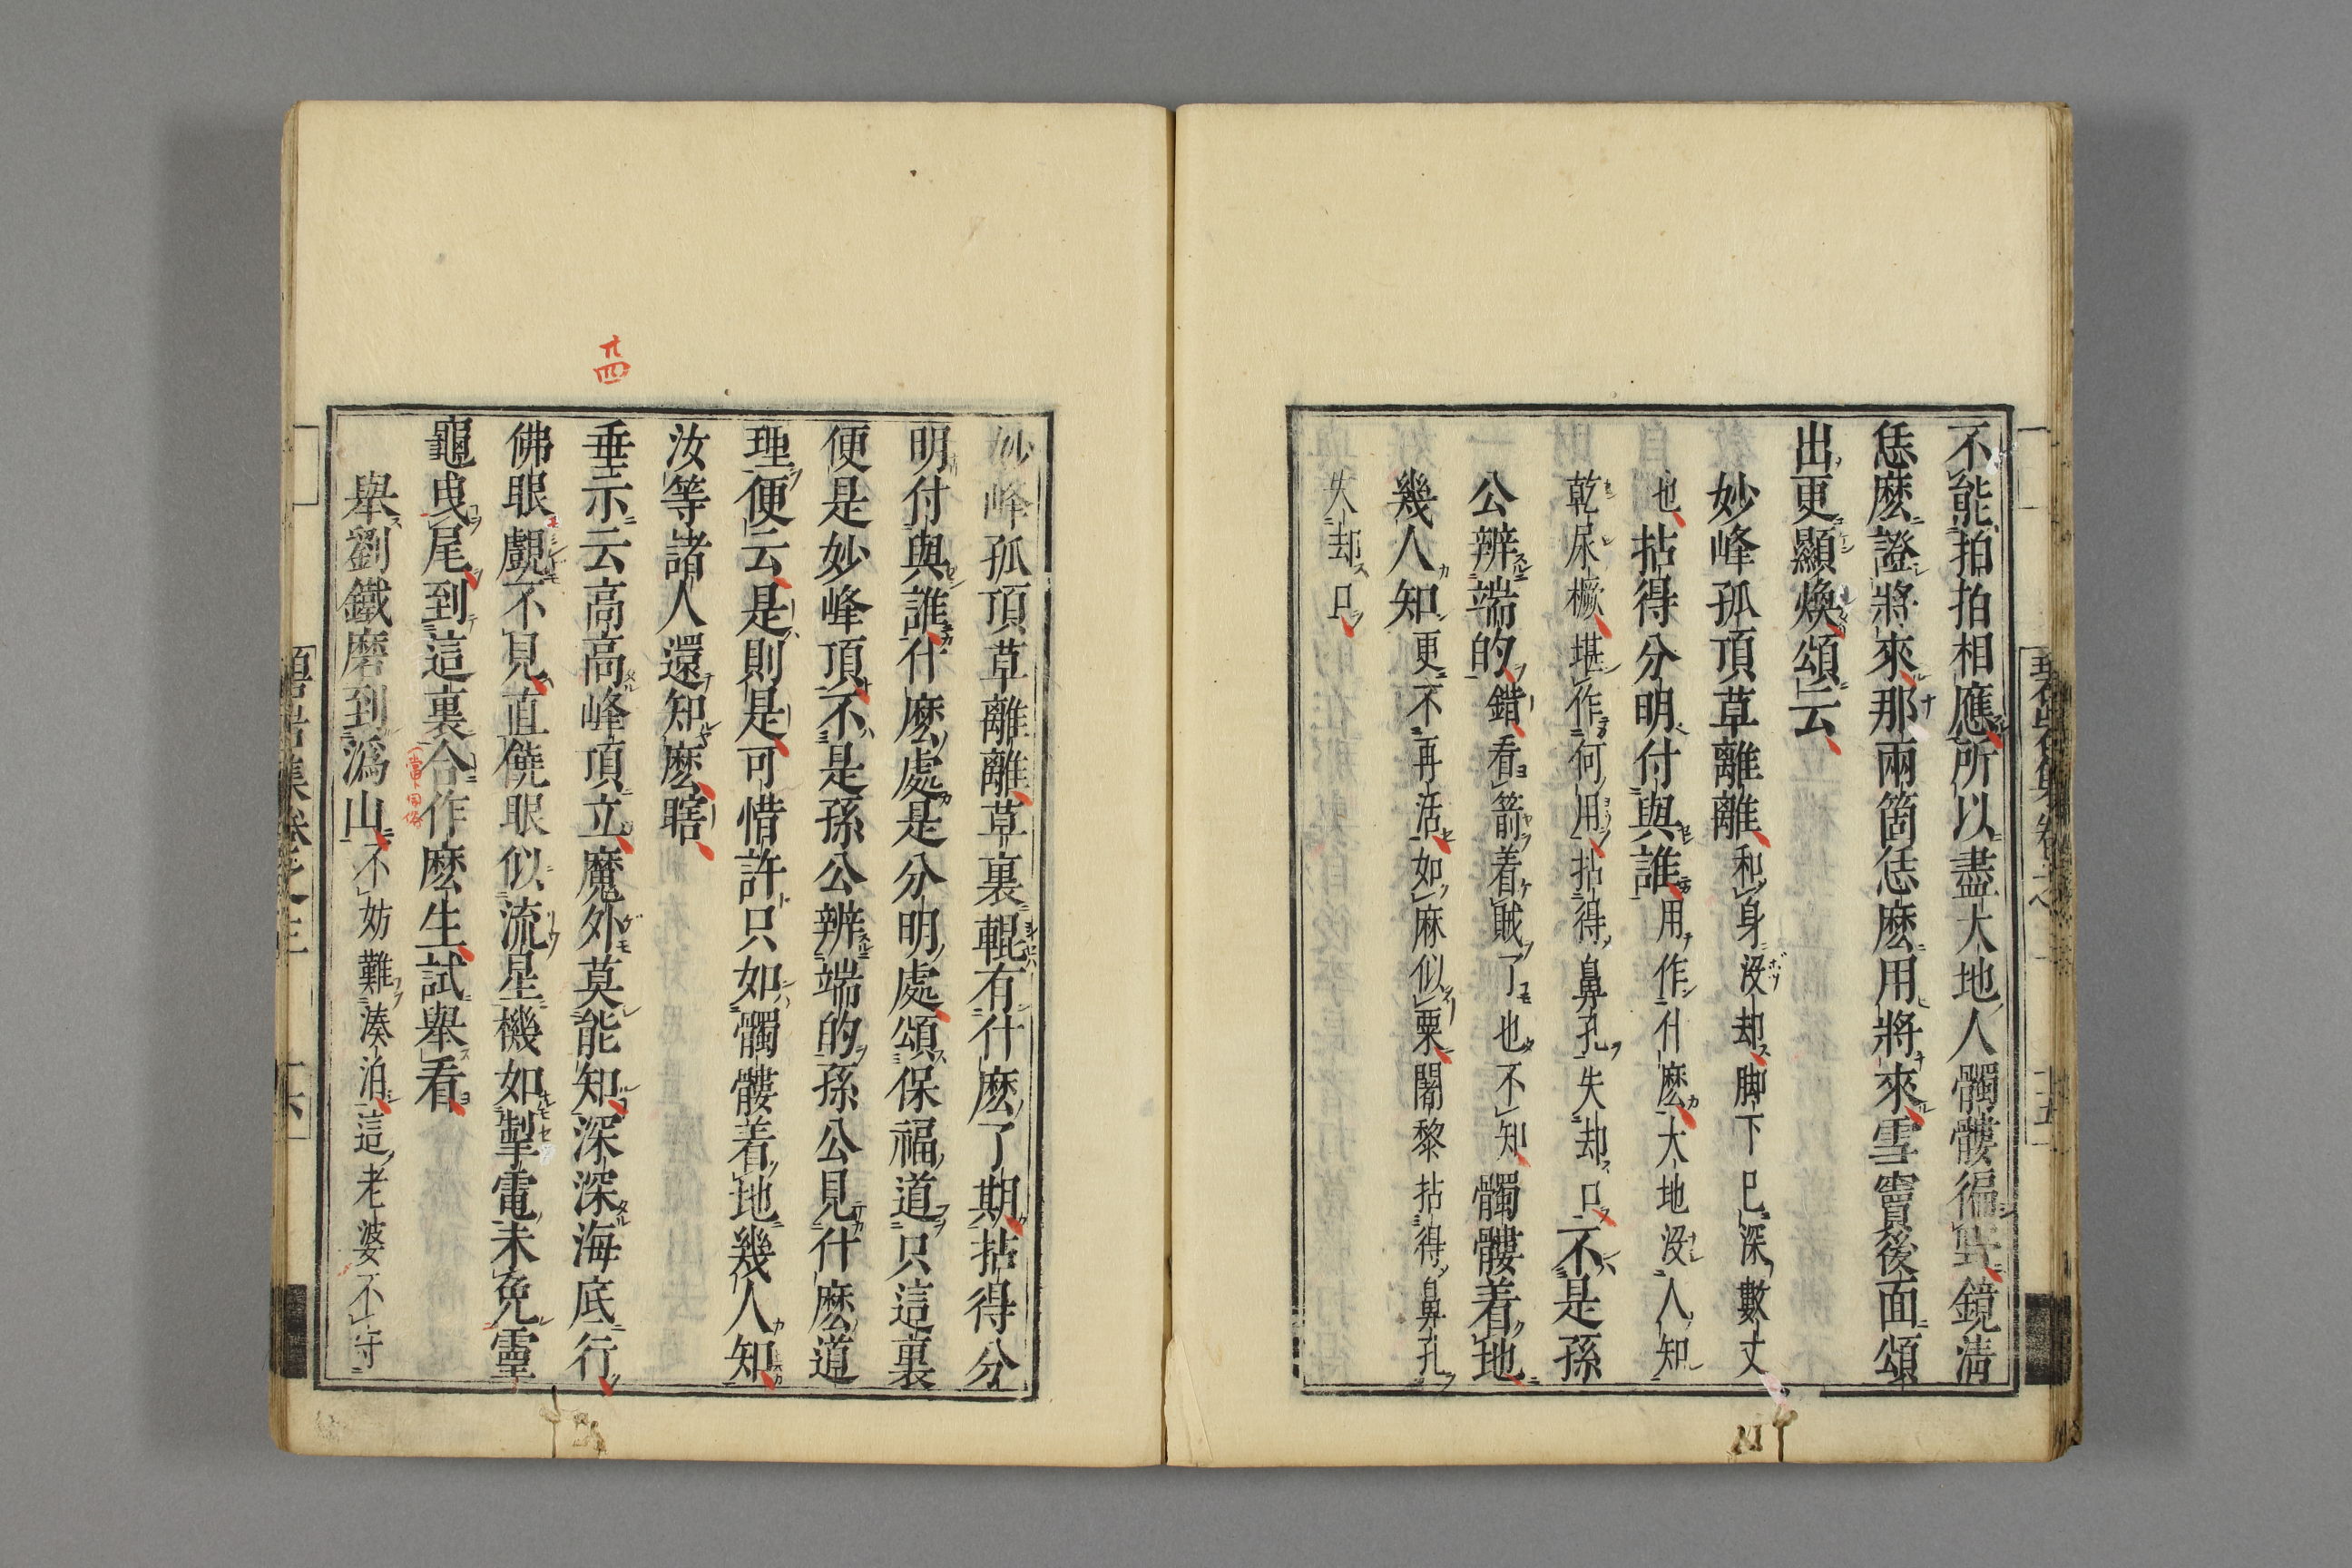 不能拍拍相應所以盡大地人髑髏徧野鏡淸
恁麽證將來那兩箇恁麽用將來雪竇後面頌
出更顯煥頌云
妙峰孤頂草離離和身沒却脚下已深數丈
也拈得分明付與誰用作什麽大地沒人知
乾屎橛堪作何用拈得鼻孔失却口不是孫
公辨端的錯看箭着賊了也不知髑髏着地
幾人知更不再活如麻似粟闍黎拈得鼻孔
失却口
妙峰孤頂草離離草裏輥有什麽了期拈得分
明付與誰什麽處是分明處頌保福道只這裏
便是妙峰頂不是孫公辨端的孫公見什麽道
理便云是則是可惜許只如髑髏着地幾人知
汝等諸人還知麽瞎
垂示云高高峰頂立魔外莫能知深深海底行
佛眼覷不見直饒眼似流星機如掣電未免靈
龜曳尾到這裏合作麽生試舉看
舉劉鐵磨到潙山不妨難湊泊這老婆不守
碧岩集卷之三
十六
卄四